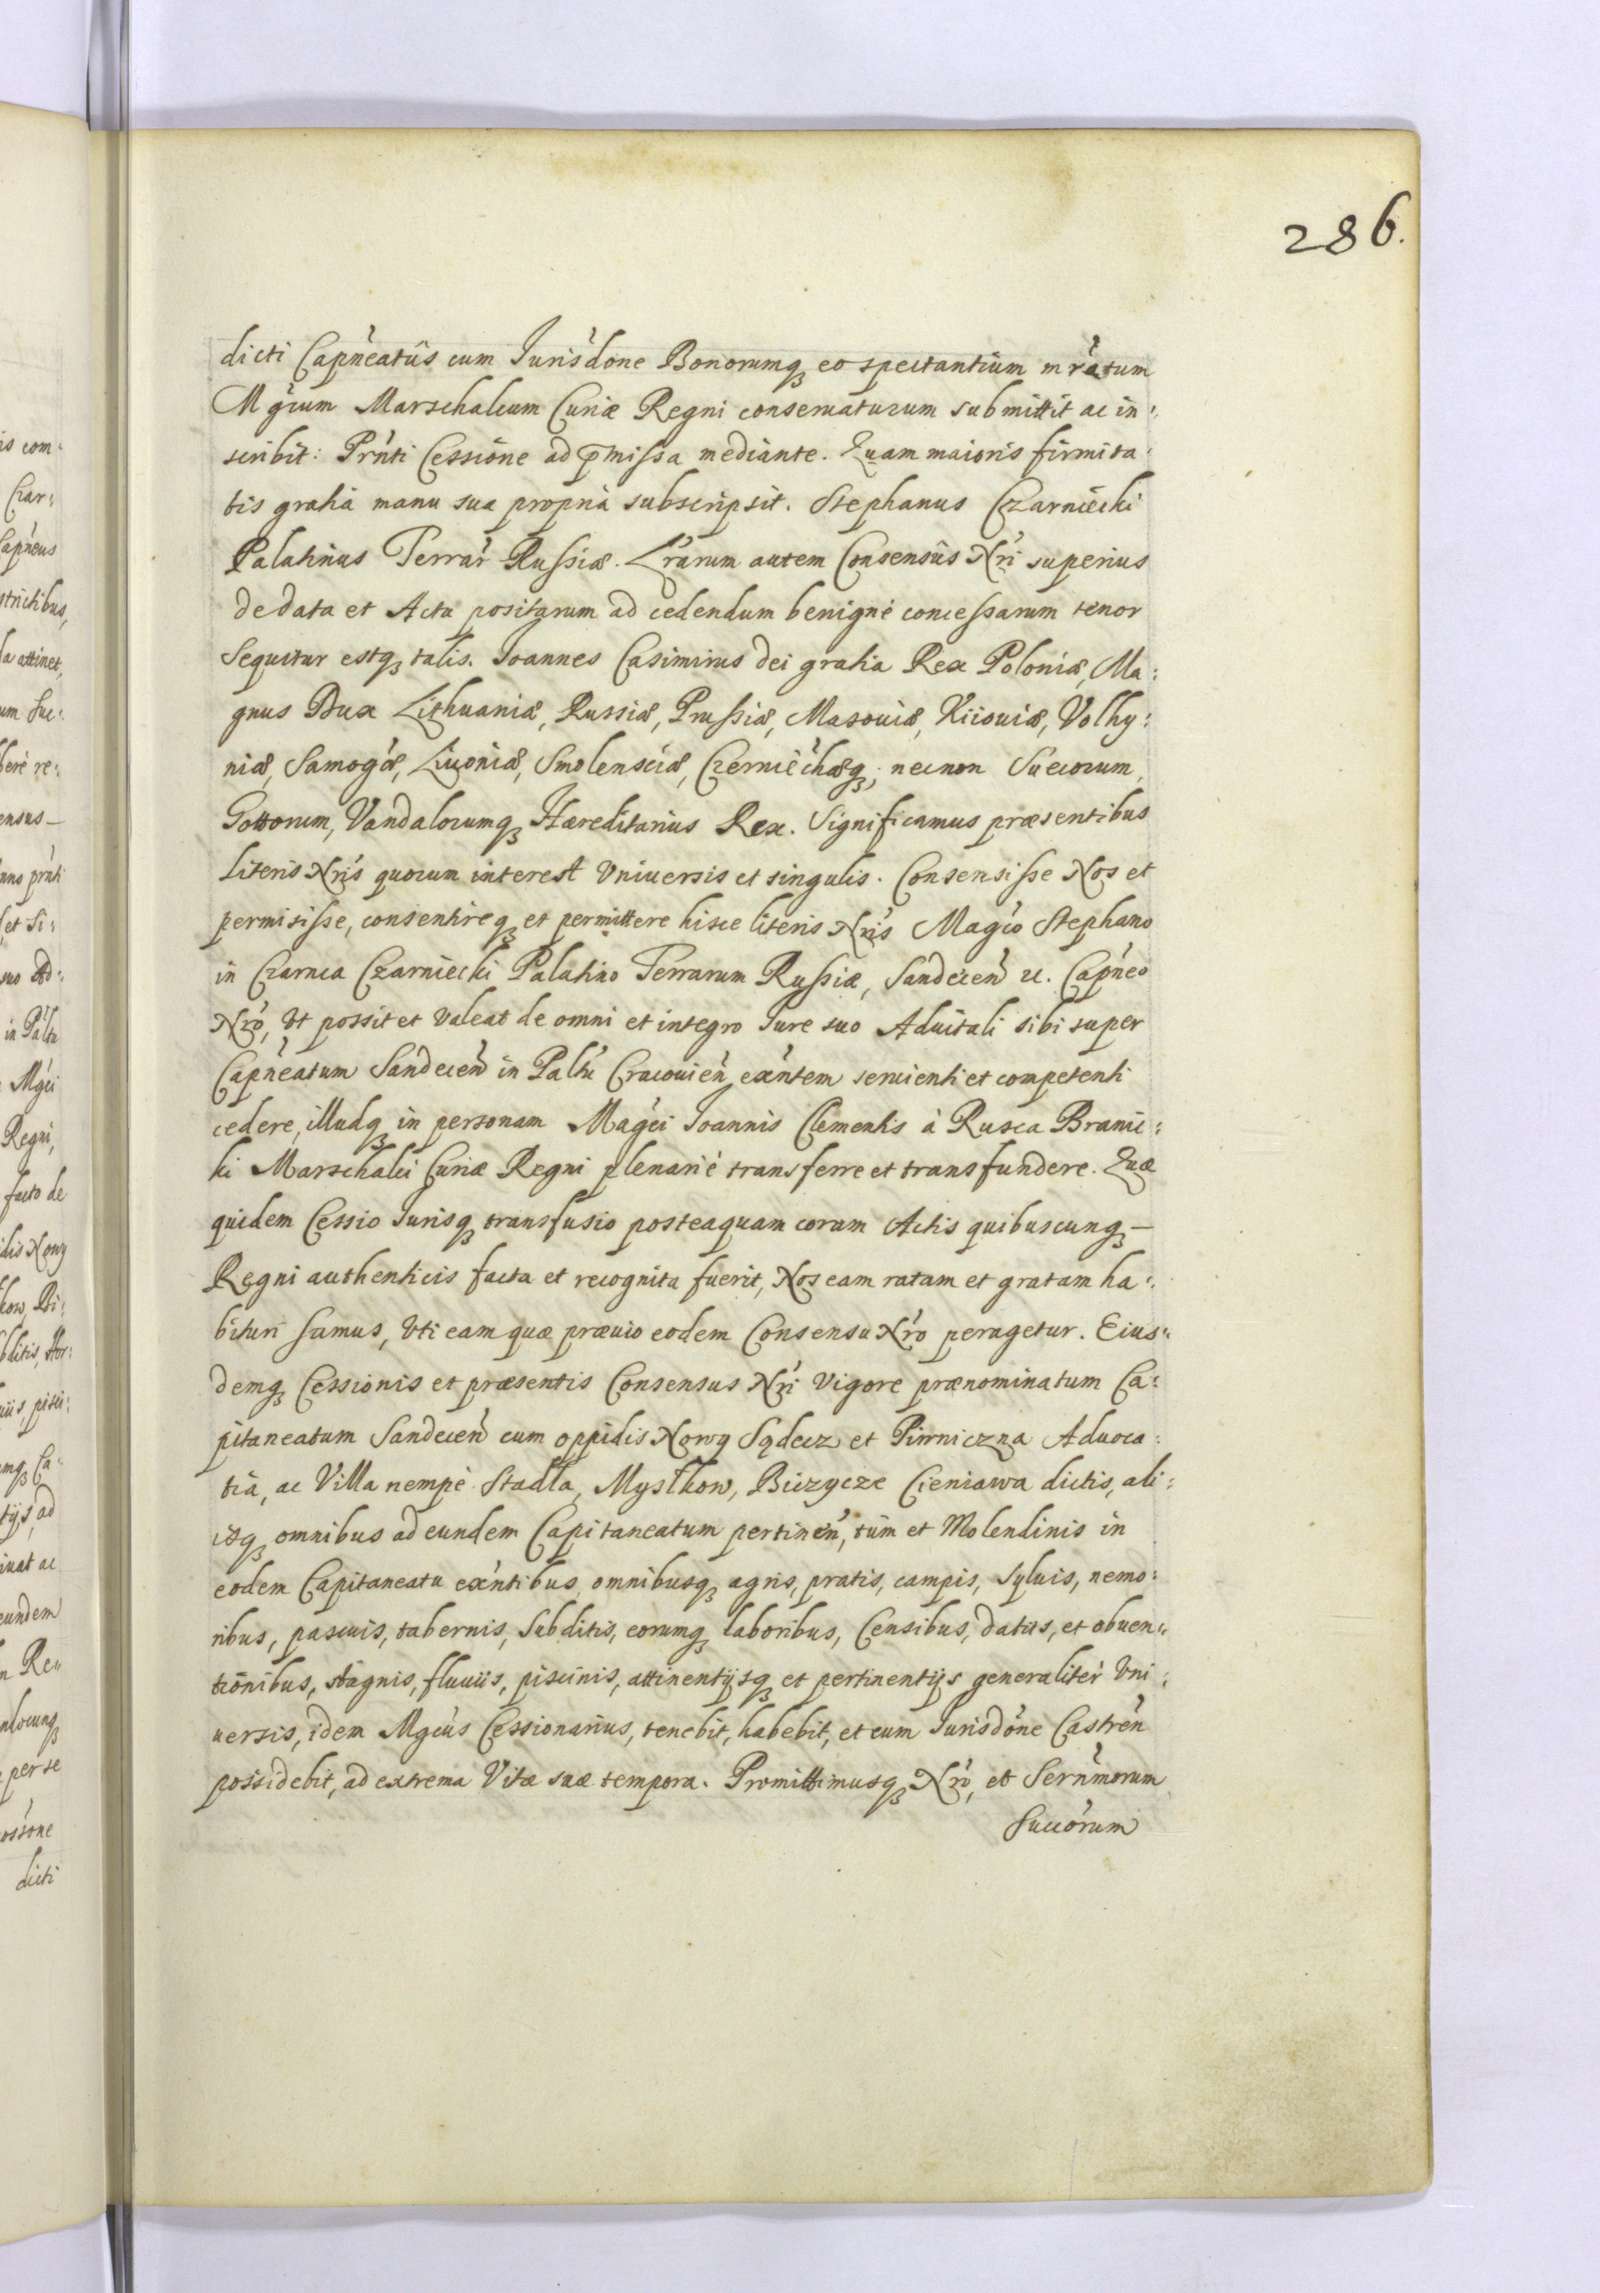 286.
dicti Capńeatûs cum Jurisdone Bonorumq3 eo spectantium mratum
Mgcum Marschalcum Curiæ Regni conseruaturum submittit ac in:
scribit: Prńti Cessione ad pmissa mediante. Quam maioris firmita:
tis gratia manu sua propria subscripsit. Stephanus Czarniecki
Palatinus Terrar Russiæ. Lrarum autem Consensûs Nri superius
de data et Acta positarum ad cedendum benignè concessarum tenor
Sequitur estq3 talis. Joannes Casimirus Dei gratia Rex Poloniæ, Ma:
gnus Dux Lithuaniæ, Russiæ, Prussiæ, Masouiæ, Kiiouiæ, Volhy:
niæ, Samogæ, Liuoniæ, Smolensciæ, Czerniechæq3; necnon Suecorum,
Gottorum, Vandalorumq3 Hæreditarius Rex. Significamus præsentibus
literis Nris quorum interest Vniuersis et singulis. Consensisse Nos et
permisisse, consentireq3 et permittere hisce literis Nris Magco Stephano
in Czarnca Czarniecki Palatino Terrarum Russiæ, Sandecen &c. Capneo
Nro, Vt possit et valeat de omni et integro Jure suo Aduitali sibi super
Capneatum Sandecen in Paltu Cracouien exntem seruienti et competenti
cedere, illudq3 in personam Magci Joannis Clementis à Rusca Branic:
ki Marschalci Curiæ Regni plenariè transferre et transfundere. Quæ
quidem Cessio Jurisq3 transfusio posteaquam coram Actis quibuscunq3 —
Regni authenticis facta et recognita fuerit, Nos eam ratam et gratam ha:
bituri sumus, Vti eam quæ præuio eodem Consensu Nro peragetur. Eius:
demq3 Cessionis et præsentis Consensus Nri Vigore prænominatum Ca:
pitaneatum Sandecen cum oppidis Nowy Sądecz et Piwniczna Aduoca:
tia, ac Villa nempè Stadła, Mystkow, Biczycze Cieniawa dictis, ali:
isq3 omnibus ad eundem Capitaneatum pertinen, tùm et Molendinis in
eodem Capitaneatu exntibus, omnibusq3 agris, pratis, campis, Syluis, nemo:
ribus, pascuis, tabernis, Subditis, eorumq3 laboribus, Censibus, datiis, et obuen:
tionibus, stagnis, fluuiis, piscinis, attinentijsq3 et pertinentijs generalitèr Vni:
uersis, idem Mgcus Cessionarius, tenebit, habebit, et cum Jurisdone Castren
possidebit, ad extrema Vitæ suæ tempora. Promittimusq3 Nro, et Sernmorum
Succorum